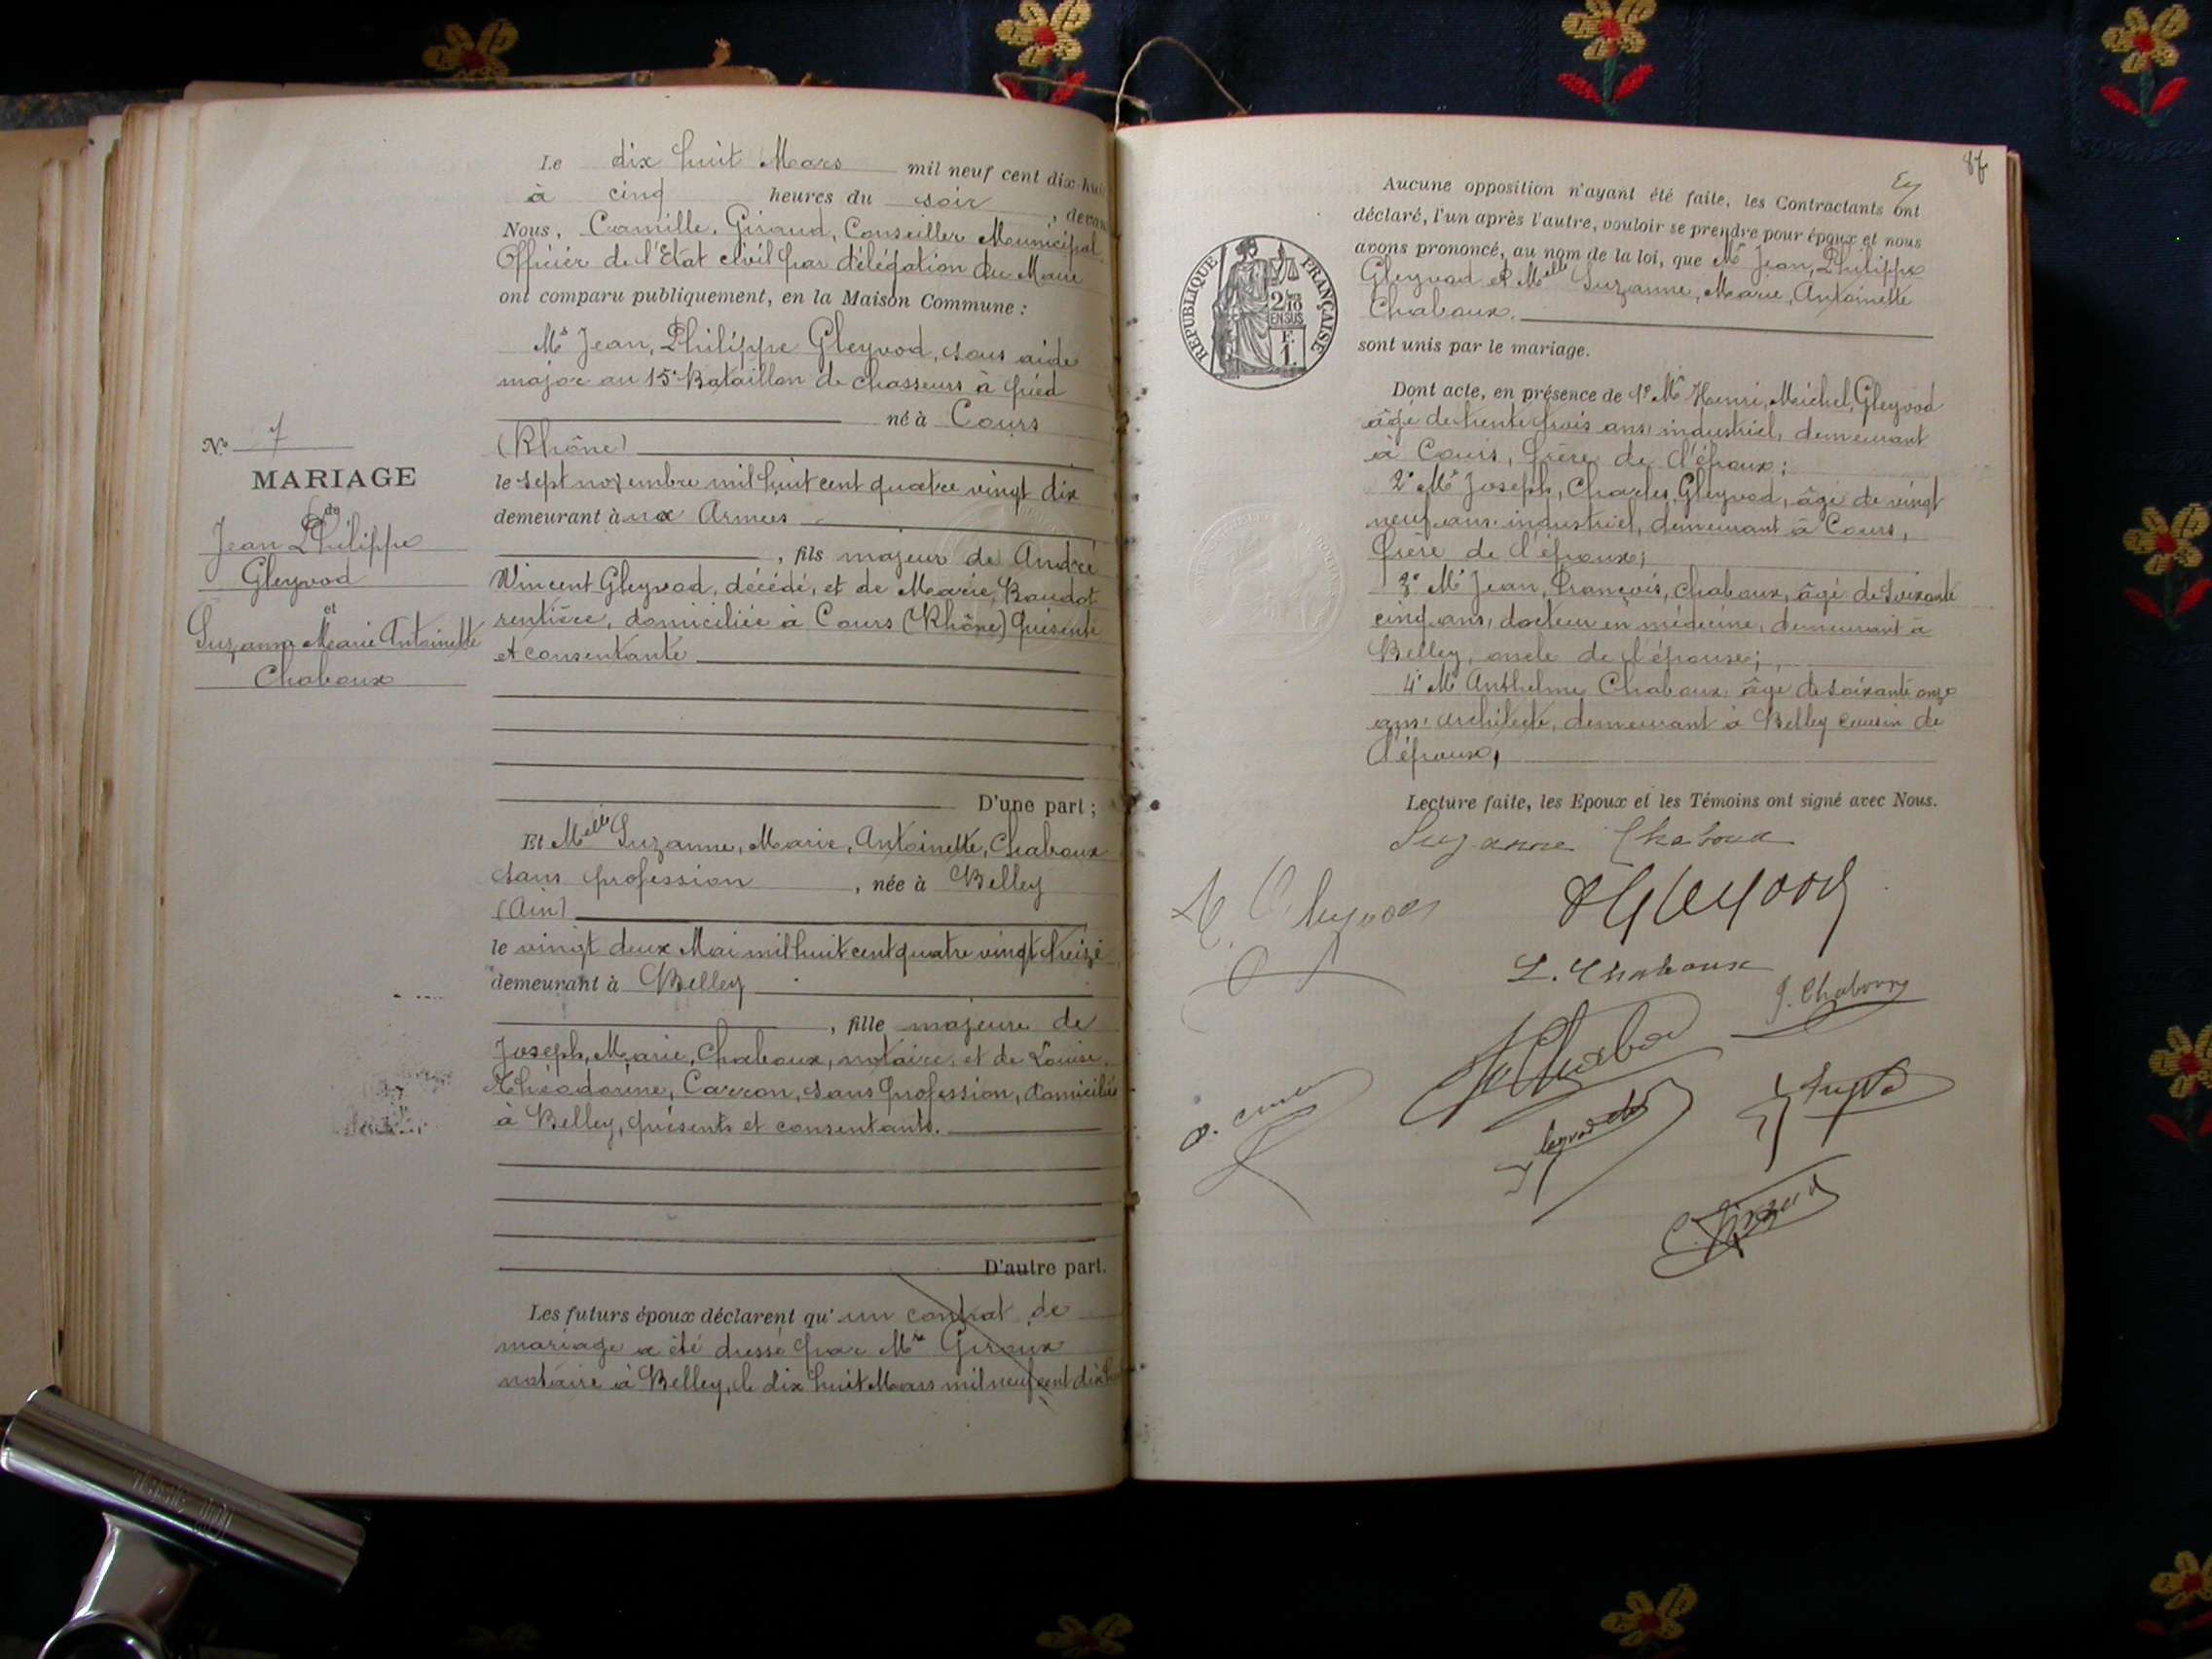 Le dix huit Mars mil neuf cent dix-hui
à cinq heures du soir , devan
Nous, Camille, Giraud, Conseiller Municipal
Officier de l'Etat civil par délégation du Maire
ont comparu publiquement, en la Maison Commune :
Mr Jean, Philippe Gleyvod, sous aide
major au 15e Bataillon de chasseurs à pied
né à Cours
(Rhône)
le sept novembre mil huit cent quatre vingt dix
demeurant à ux Armées
, fils majeur de André
Vincent Gleyvod, décédé, et de Marie, Baudot
rentière, domiciliée à Cours (Rhône) présente
et consentante
D'une part ;
Et Melle Suzanne, Marie, Antoinette, Chaboux
sans profession , née à Belley
(Ain)
le vingt deux Mai mil huit cent quatre vingt treize
demeurant à Belley
, fille majeure de
Joseph, Marie, Chaboux, notaire, et de Louise,
Théodorine, Carron, sans profession, domiciliés
à Belley, présents et consentants.
D'autre part.
Les futurs époux déclarent qu' un contrat de
mariage a été dressé par Me Giroux
notaire à Belley, le dix huit Mars mil neuf cent dix hui
No 7
MARIAGE
de
Jean Philippe
Gleyvod
et
Suzanne Marie Antoinette
Chaboux
87
Aucune opposition n'ayant été faite, les Contractants ont
déclaré, l'un après l'autre, vouloir se prendre pour époux et nous
avons prononcé, au nom de la loi, que Mr Jean, Philippe
Gleyvod et Melle Suzanne, Marie, Antoinette
Chaboux.
sont unis par le mariage.
RÉPUBLIQUE FRANÇAISE
2/10
EN SUS
F.
1.
Dont acte, en présence de 1° Mr Henri, Michel, Gleyvod
âgé de trente trois ans, industriel, demeurant
à Cours, frère de l'époux ;
2° Mr Joseph, Charles, Gleyvod, âgé de vingt
neuf ans, industriel, demeurant à Cours,
frère de l'époux ;
3° Mr Jean, François, Chaboux, âgé de soixante
cinq ans, docteur en médecine, demeurant à
Belley, oncle de l'épouse ;
4° Mr Anthelme Chaboux, âgé de soixante onze
ans, architecte, demeurant à Belley cousin de
l'épouse,
Lecture faite, les Epoux et les Témoins ont signé avec Nous.
Suzanne Chaboux
Gleyvod
L. Chaboux
J. Chaboux
C. Giraud